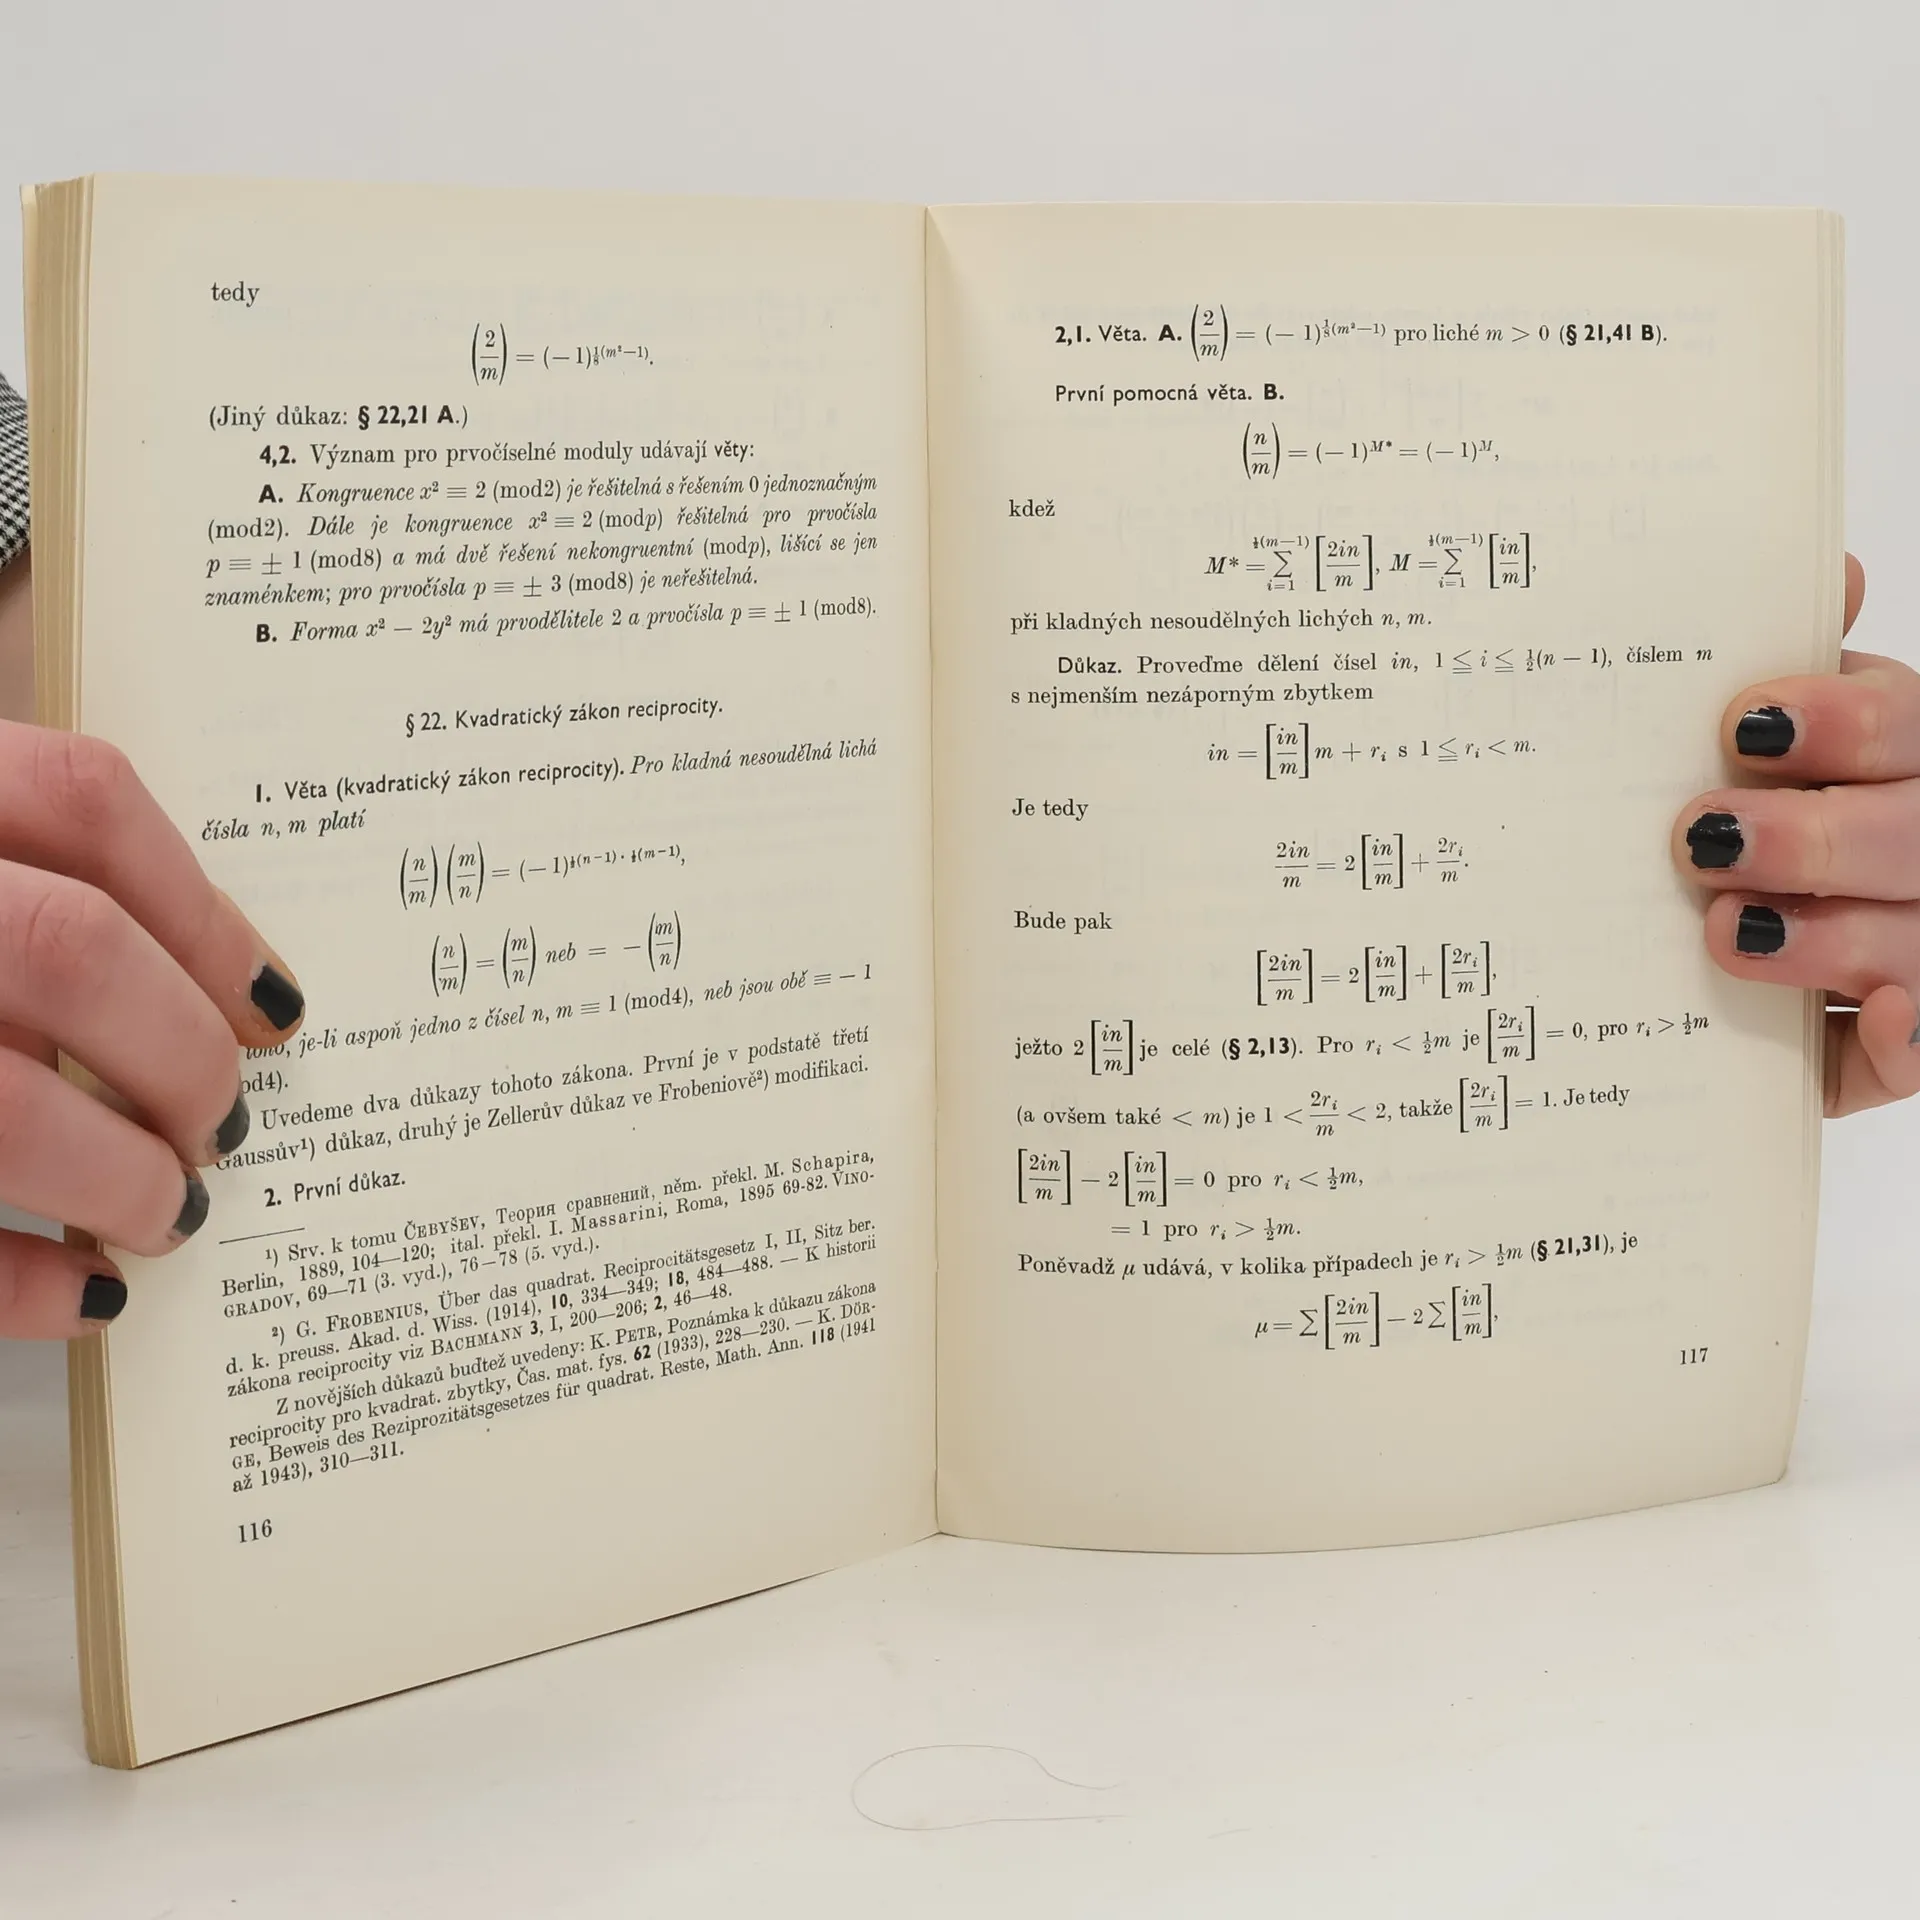 tedy
(2/m) = (— 1)^{⅛(m²—1)}.
(Jiný důkaz: § 22,21 A.)
4,2. Význam pro prvočíselné moduly udávají věty:
A. Kongruence x² ≡ 2 (mod2) je řešitelná s řešením 0 jednoznačným
(mod2). Dále je kongruence x² ≡ 2 (modp) řešitelná pro prvočísla
p ≡ ± 1 (mod8) a má dvě řešení nekongruentní (modp), lišící se jen
znaménkem; pro prvočísla p ≡ ± 3 (mod8) je neřešitelná.
B. Forma x² — 2y² má prvodělitele 2 a prvočísla p ≡ ± 1 (mod8).
§ 22. Kvadratický zákon reciprocity.
1. Věta (kvadratický zákon reciprocity). Pro kladná nesoudělná lichá
čísla n, m platí
(n/m) (m/n) = (— 1)^{½(n—1) · ½(m—1)},
(n/m) = (m/n) neb = — (m/n)
toho, je-li aspoň jedno z čísel n, m ≡ 1 (mod4), neb jsou obě ≡ — 1
od4).
Uvedeme dva důkazy tohoto zákona. První je v podstatě třetí
Gaussův¹) důkaz, druhý je Zellerův důkaz ve Frobeniově²) modifikaci.
2. První důkaz.
¹) Srv. k tomu ČEBYŠEV, Теория сравнений, něm. překl. M. Schapira,
Berlin, 1889, 104—120; ital. překl. I. Massarini, Roma, 1895 69-82. VINO-
GRADOV, 69—71 (3. vyd.), 76—78 (5. vyd.).
²) G. FROBENIUS, Über das quadrat. Reciprocitätsgesetz I, II, Sitz ber.
d. k. preuss. Akad. d. Wiss. (1914), 10, 334—349; 18, 484—488. — K historii
zákona reciprocity viz BACHMANN 3, I, 200—206; 2, 46—48.
Z novějších důkazů buďtež uvedeny: K. PETR, Poznámka k důkazu zákona
reciprocity pro kvadrat. zbytky, Čas. mat. fys. 62 (1933), 228—230. — K. DÖR-
GE, Beweis des Reziprozitätsgesetzes für quadrat. Reste, Math. Ann. 118 (1941
až 1943), 310—311.
116
2,1. Věta. A. (2/m) = (— 1)^{⅛(m²—1)} pro liché m > 0 (§ 21,41 B).
První pomocná věta. B.
(n/m) = (— 1)^{M*} = (— 1)^M,
kdež
M* = ∑_{i=1}^{½(m—1)} [2in/m], M = ∑_{i=1}^{½(m—1)} [in/m],
při kladných nesoudělných lichých n, m.
Důkaz. Proveďme dělení čísel in, 1 ≦ i ≦ ½(n — 1), číslem m
s nejmenším nezáporným zbytkem
in = [in/m] m + r_i s 1 ≦ r_i < m.
Je tedy
2in/m = 2 [in/m] + 2r_i/m.
Bude pak
[2in/m] = 2 [in/m] + [2r_i/m],
ježto 2 [in/m] je celé (§ 2,13). Pro r_i < ½m je [2r_i/m] = 0, pro r_i > ½m
(a ovšem také < m) je 1 < 2r_i/m < 2, takže [2r_i/m] = 1. Je tedy
[2in/m] — 2 [in/m] = 0 pro r_i < ½m,
= 1 pro r_i > ½m.
Poněvadž μ udává, v kolika případech je r_i > ½m (§ 21,31), je
μ = ∑ [2in/m] — 2 ∑ [in/m],
117